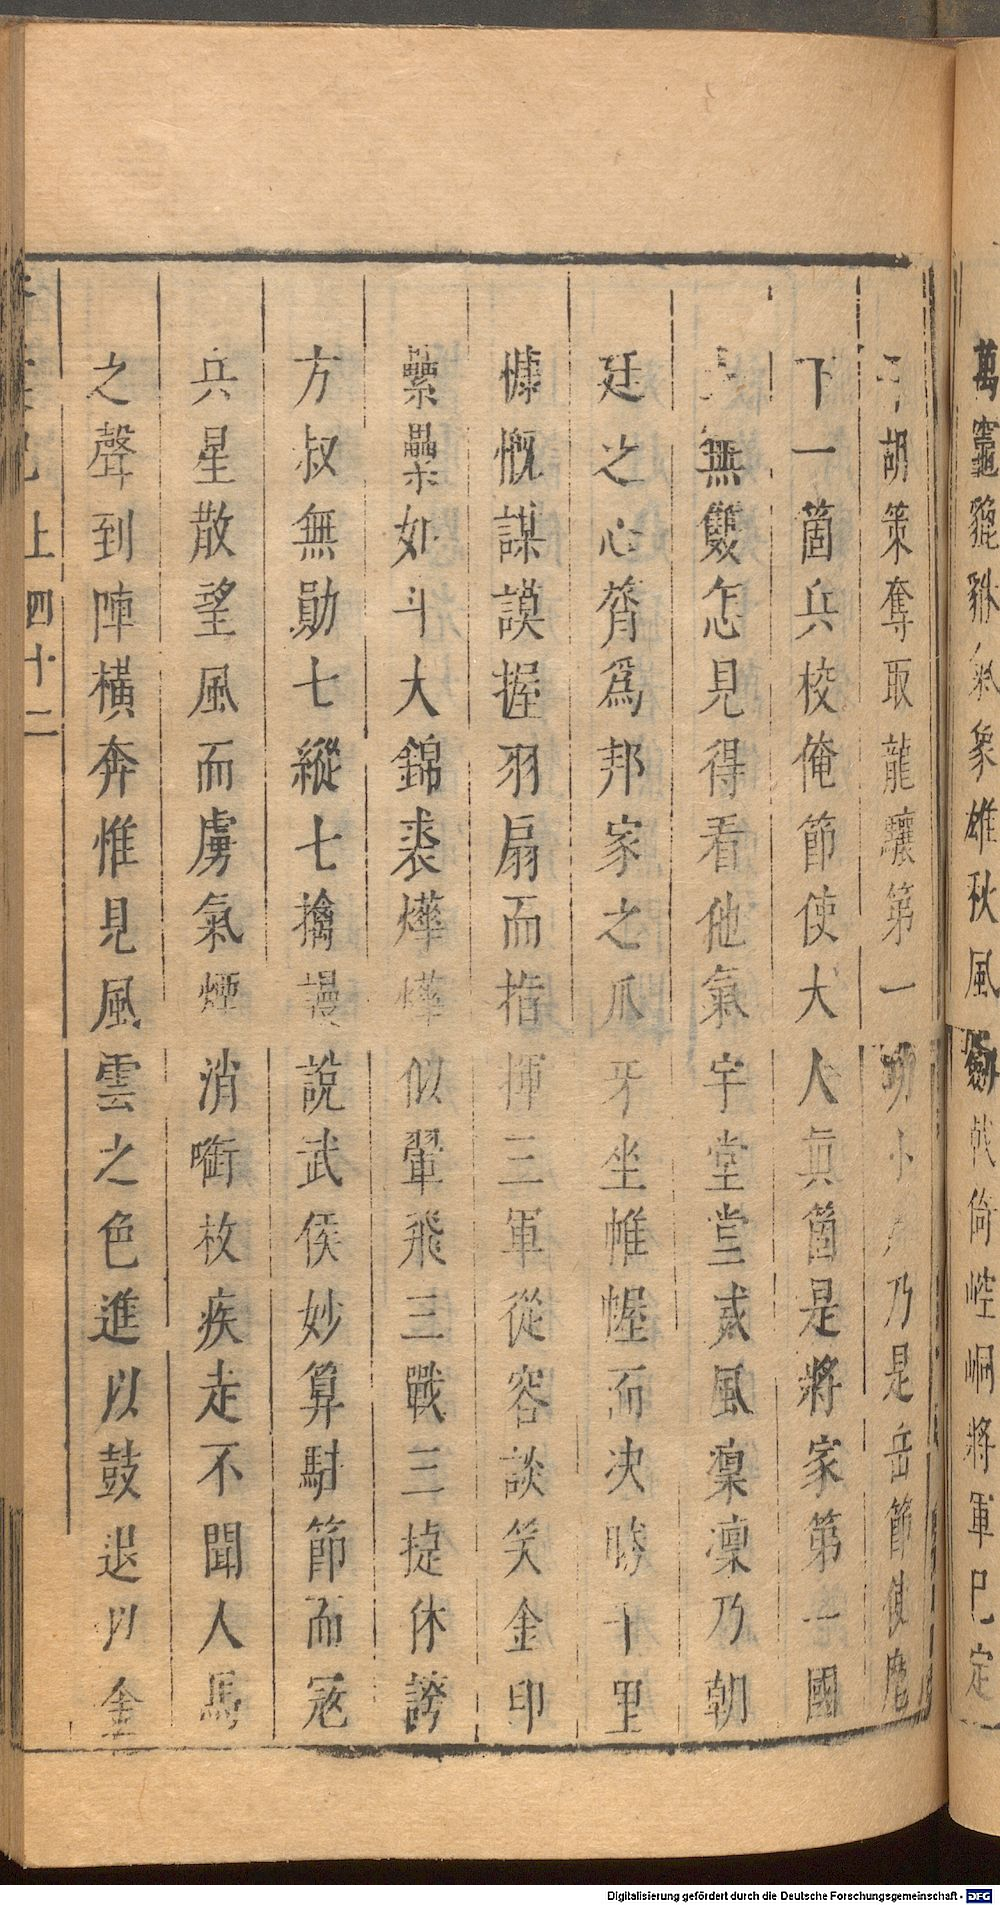 萬竈貔貅氣象雄秋風劒戟倚崆峒將軍已定
平胡策奪取龍驤第一功小乃是岳節使麾
下一箇兵校俺節使大人眞箇是將家第一國
無雙怎見得看他氣宇堂堂威風凜凜乃朝
廷之心膂爲邦家之爪牙坐帷幄而決勝千里
慷慨謀謨握羽扇而指揮三軍從容談笑金印
纍纍如斗大錦裘燁燁似翬飛三戰三捷休誇
方叔無勛七縱七擒謾說武侯妙算駐節而寇
兵星散望風而虜氣煙消啣枚疾走不聞人馬
之聲到陣橫奔惟見風雲之色進以鼓退以金
上 四十二
Digitalisierung gefördert durch die Deutsche Forschungsgemeinschaft - DFG